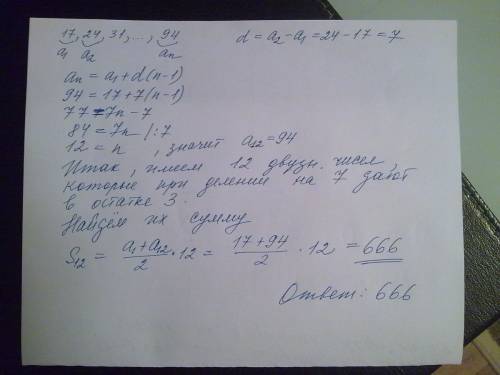 17, 24, 31, ..., 94 d = a₂ - a₁ = 24 - 17 = 7
a₁ a₂ aₙ
aₙ = a₁ + d(n-1)
94 = 17 + 7(n-1)
77 = 7n - 7
84 = 7n /:7
12 = n , значит a₁₂ = 94
Итак, имеем 12 двузн. чисел,
которые при делении на 7 дают
в остатке 3.
Найдём их сумму
S₁₂ = (a₁ + a₁₂)/2 · 12 = (17 + 94)/2 · 12 = 666
Ответ: 666